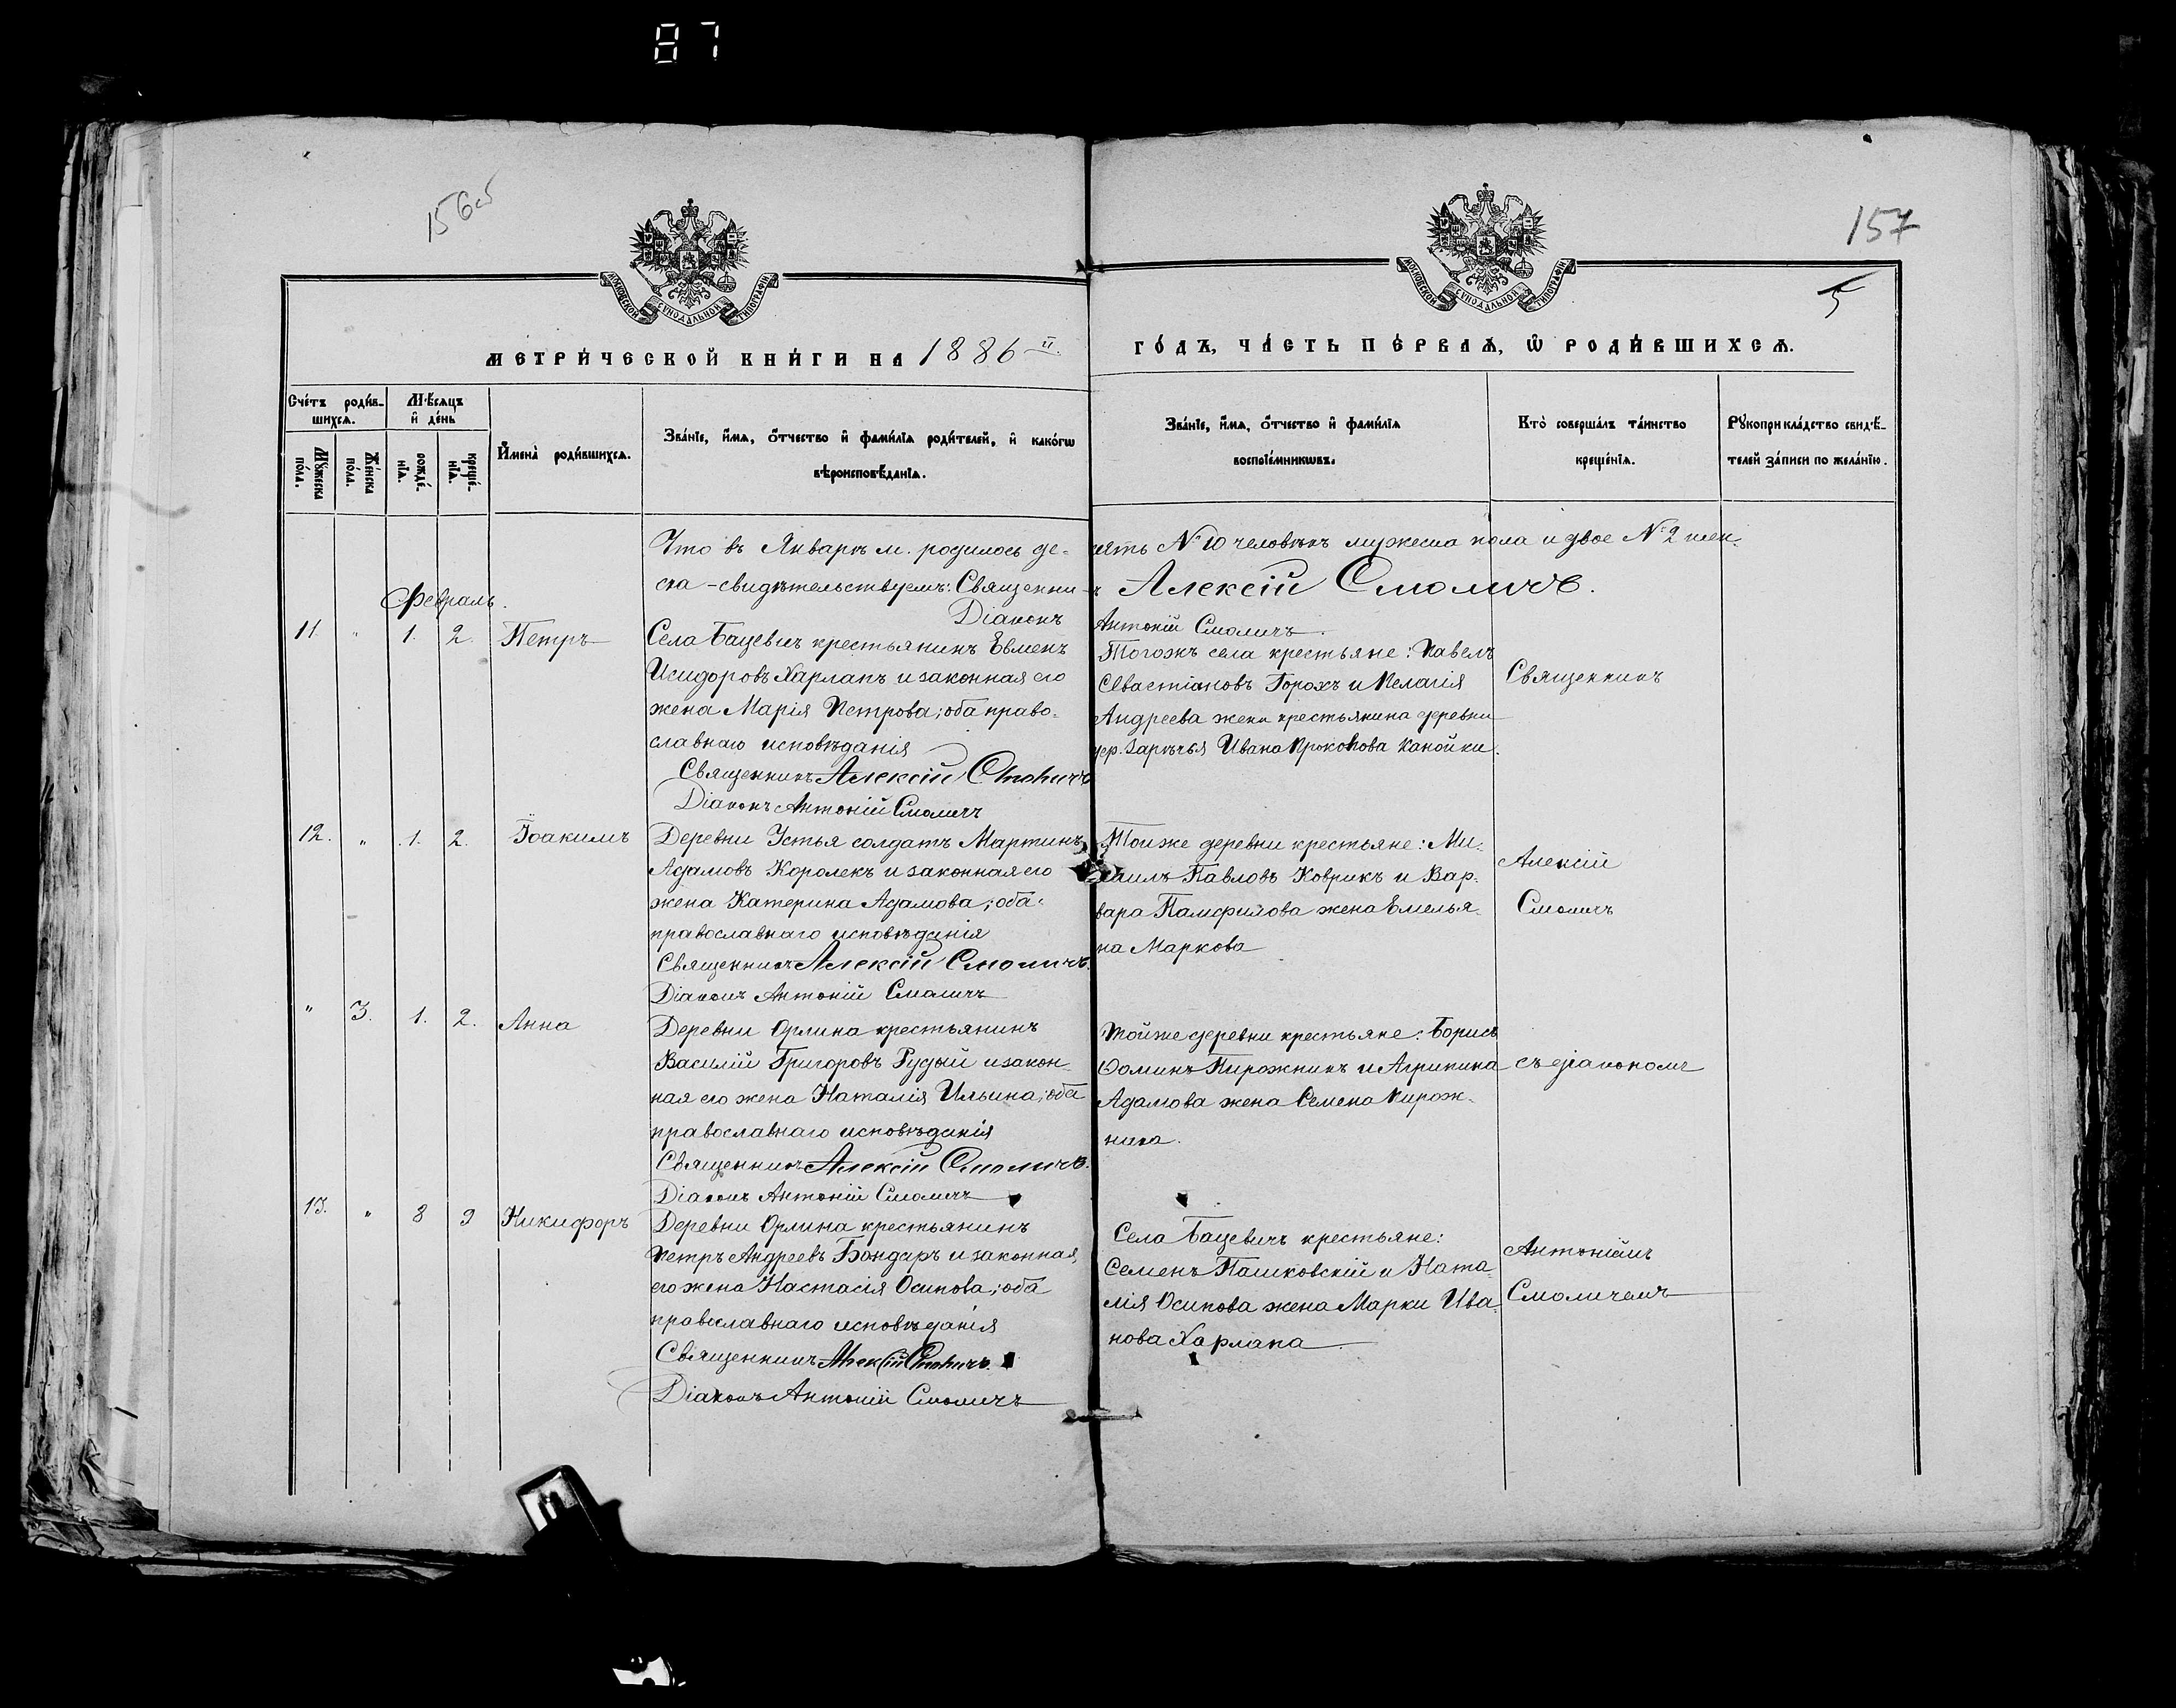 87
156об
157
МОСКОВСКОЙ СѴНОДАЛЬНОЙ ТИПОГРАФІИ
МОСКОВСКОЙ СѴНОДАЛЬНОЙ ТИПОГРАФІИ
5
МЕТРИ́ЧЕСКОЙ КНИ́ГИ НА 1886 й
ГО́ДЪ, ЧА́СТЬ ПЕ́РВАѦ, Ѡ РОДИ́ВШИХСѦ.
Сче́тъ роди́в-
шихсѧ.
Мѣ́сѧцъ
и҆ де́нь
Мꙋ́жеска по́ла.
Же́нска по́ла.
рожде́-нїѧ.
креще́-нїѧ.
И҆мена̀ роди́вшихсѧ.
Зва́нїе, и҆́мѧ, ѻ҆́тчество и҆ фами́лїѧ роди́телей, и҆ како́гѡ
вѣроисповѣ́данїѧ.
Зва́нїе, и҆́мѧ, ѻ҆́тчество и҆ фами́лїѧ
воспрїе́мникѡвъ.
Кто̀ соверша́лъ та́инство
креще́нїѧ.
Рꙋкоприкла́дство свидѣ́-
телей за́писи по жела́нїю.
Что въ Январѣ м. родилось де-
сять № 10 человѣкъ мужеска пола и двое № 2 жен-
ска - свидѣтельствуемъ: Священни-
къ Алексій Смоличъ.
Діаконъ
Антоній Смоличъ.
Февраль.
11. " 1. 2. Петръ
Села Бацевич крестьянинъ Евменъ
Исидоровъ Харлапъ и законная его
жена Марія Петрова; оба право-
славнаго исповѣданія
Священникъ Алексій Смоличъ
Діаконъ Антоній Смоличъ
Тогожъ села крестьяне: Павелъ
Севастіановъ Горохъ и Пелагія
Андреева жена крестьянина деревни
дер. Зарѣчья Ивана Прокопова Канойки.
Священникъ
12. " 1. 2. Іоакимъ
Деревни Устья солдатъ Мартинъ
Адамовъ Королекъ и законная его
жена Катерина Адамова; оба
православнаго исповѣданія
Священникъ Алексій Смоличъ.
Діаконъ Антоній Смоличъ
Тойже деревни крестьяне: Ми-
хаилъ Павловъ Коврикъ и Вар-
вара Памфилова жена Емелья-
на Маркова
Алексій
Смоличъ
" 3. 1. 2. Анна
Деревни Орлина крестьянинъ
Василій Григоровъ Рудый и закон-
ная его жена Наталія Ильина; оба
православнаго исповѣданія
Священникъ Алексій Смоличъ.
Діаконъ Антоній Смоличъ
Тойже деревни крестьяне: Борисъ
Ѳоминъ Пирожникъ и Агрипина
Адамова жена Семена Пирож-
ника.
съ діакономъ
13. " 8 9 Никифоръ
Деревни Орлина крестьянинъ
Петръ Андреевъ Бондарь и законная
его жена Настасія Осипова; оба
православнаго исповѣданія
Священникъ Алексій Смоличъ.
Діаконъ Антоній Смоличъ
Села Бацевичъ крестьяне:
Семенъ Пашковскій и Ната-
лія Осипова жена Марки Ива-
нова Харлапа.
Антоніемъ
Смоличемъ